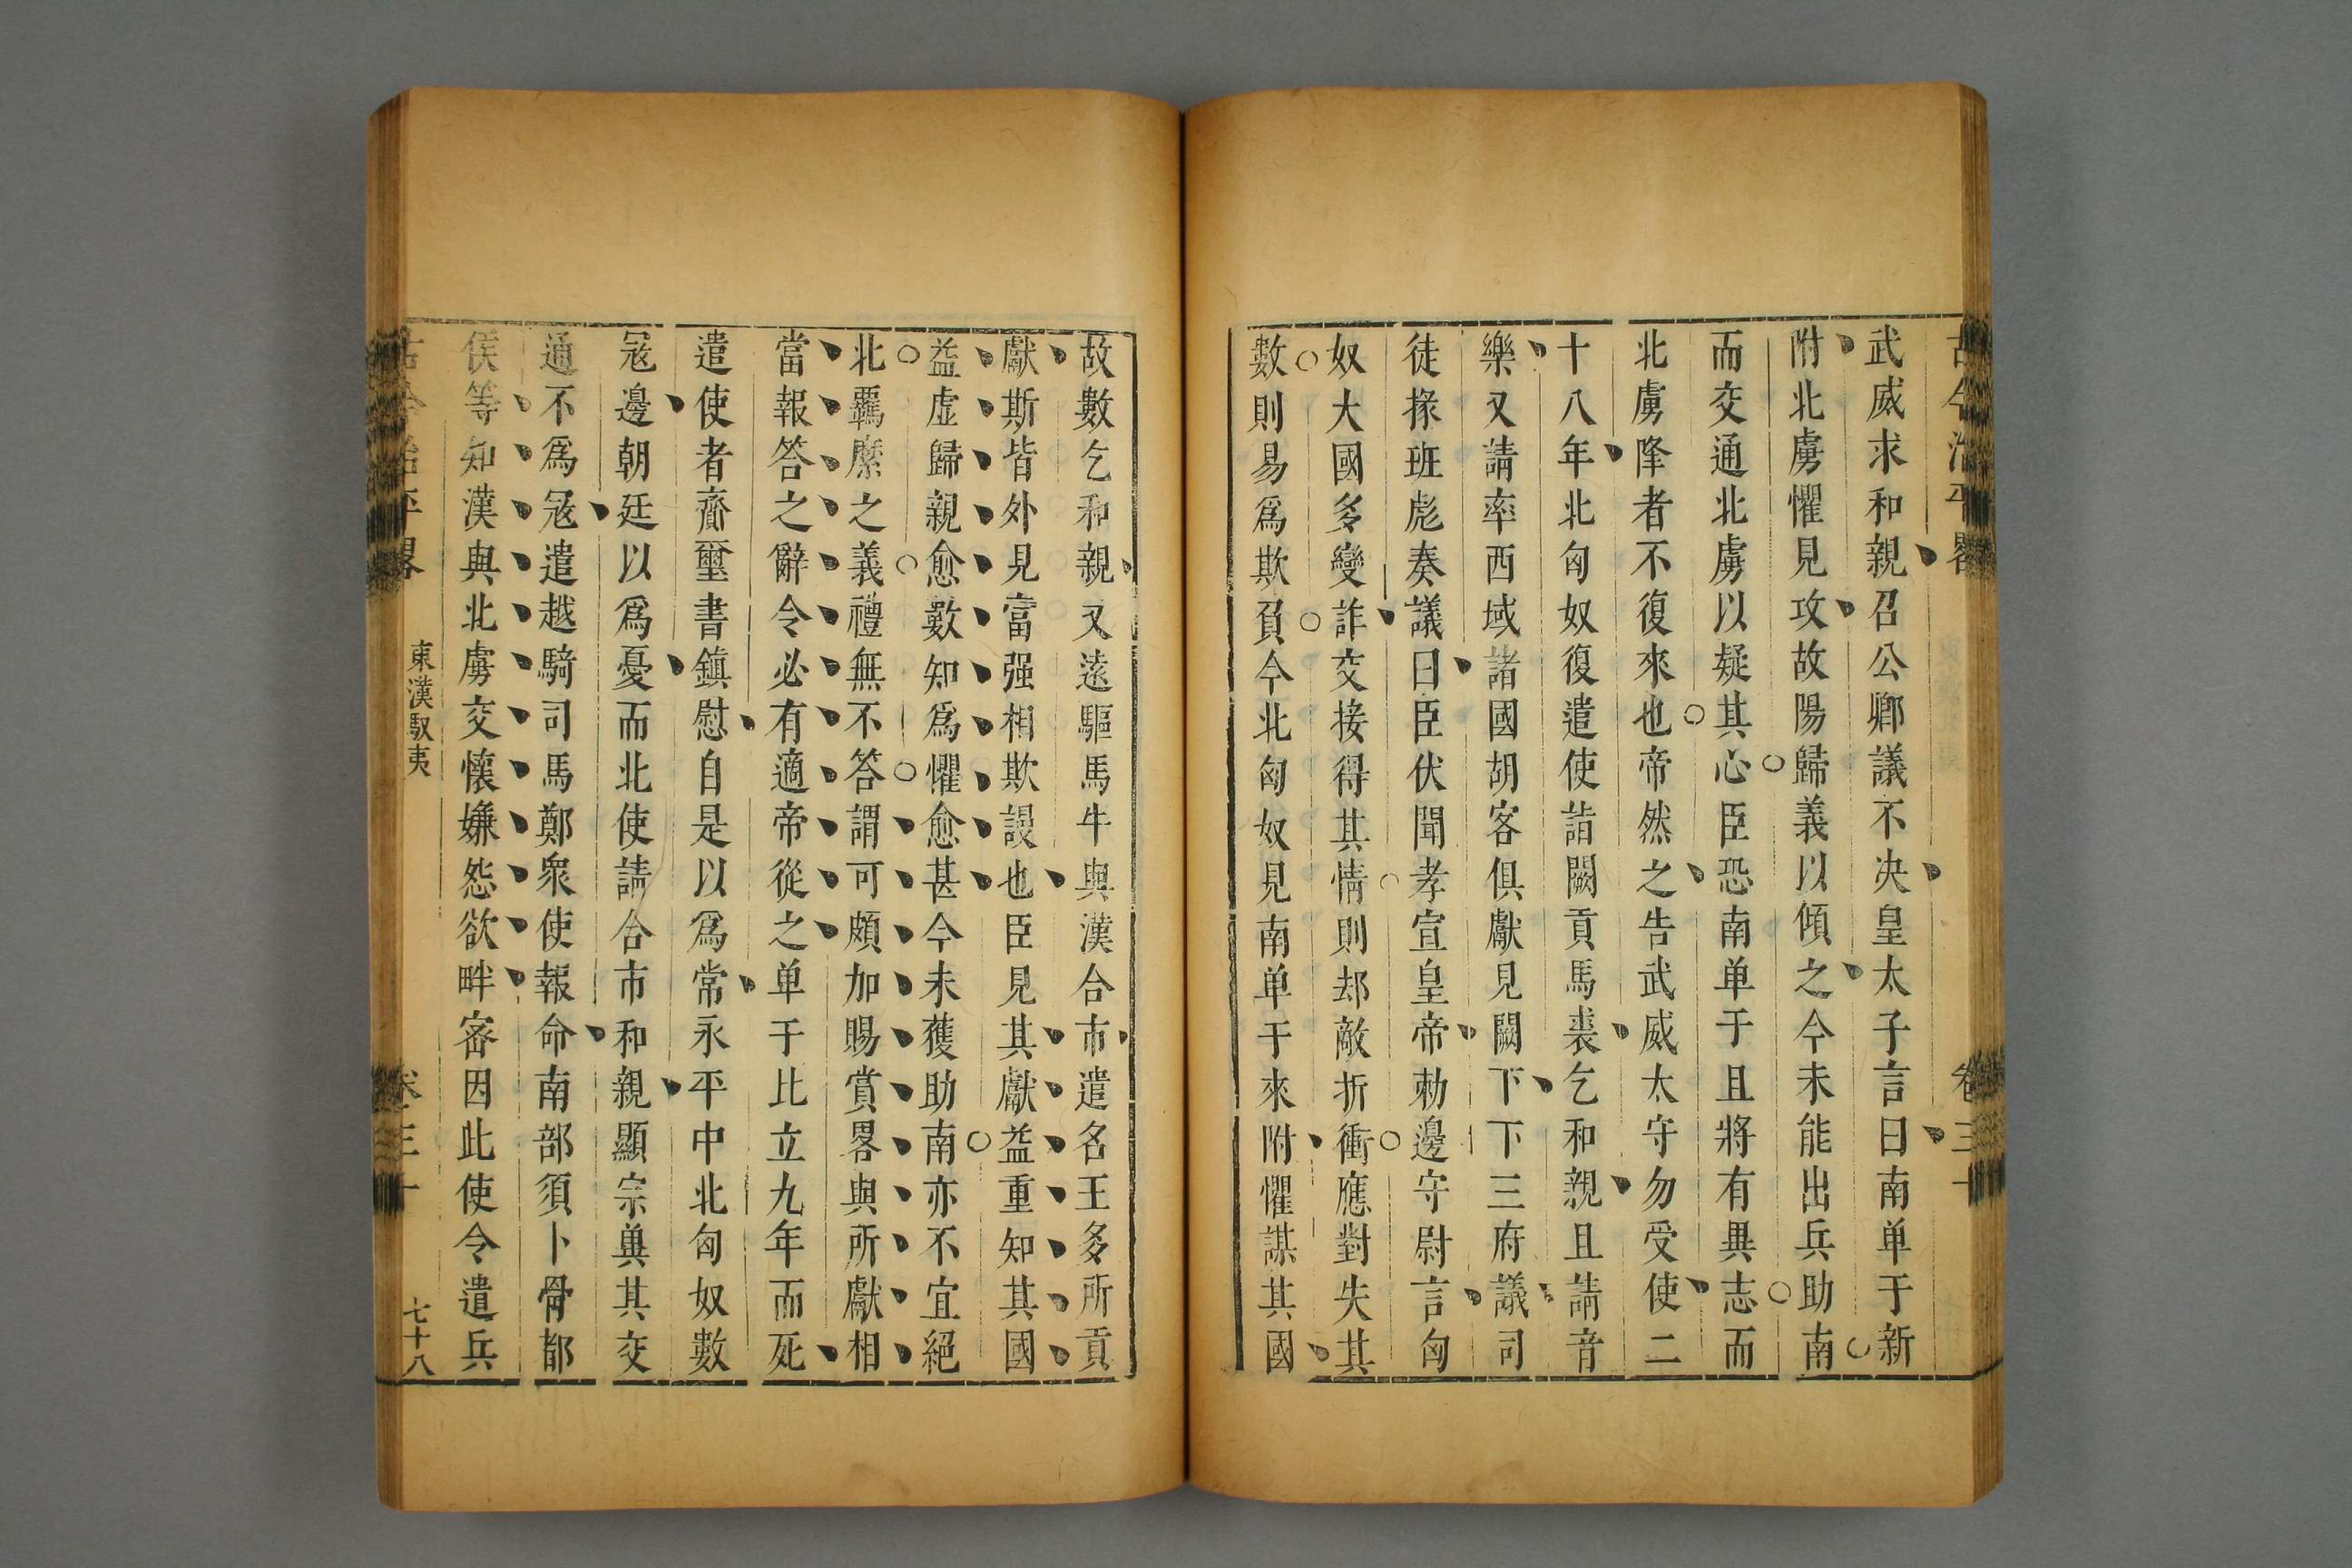 古今治平畧
卷三十
武威求和親召公卿議不决皇太子言曰南单于新
附北虜懼見攻故陽歸義以傾之今未能出兵助南
而交通北虜以疑其心臣恐南单于且將有異志而
北虜降者不復來也帝然之告武威太守勿受使二
十八年北匈奴復遣使詣闕貢馬裘乞和親且請音
樂又請率西域諸國胡客俱獻見闕下下三府議司
徒掾班彪奏議曰臣伏聞孝宣皇帝勑邊守尉言匈
奴大國多變詐交接得其情則却敵折衝應對失其
數則易爲欺負今北匈奴見南单于來附懼謀其國
故數乞和親又遠驅馬牛與漢合市遣名王多所貢
獻斯皆外見富强相欺謾也臣見其獻益重知其國
益虛歸親愈數知爲懼愈甚今未獲助南亦不宜絕
北羈縻之義禮無不答謂可頗加賜賞畧與所獻相
當報答之辭令必有適帝從之单于比立九年而死
遣使者齎璽書鎮慰自是以爲常永平中北匈奴數
寇邊朝廷以爲憂而北使請合市和親顯宗兾其交
通不爲寇遣越騎司馬鄭衆使報命南部須卜骨都
侯等知漢與北虜交懷嫌怨欲畔密因此使令遣兵
古今治平畧
東漢馭夷
卷三十
七十八